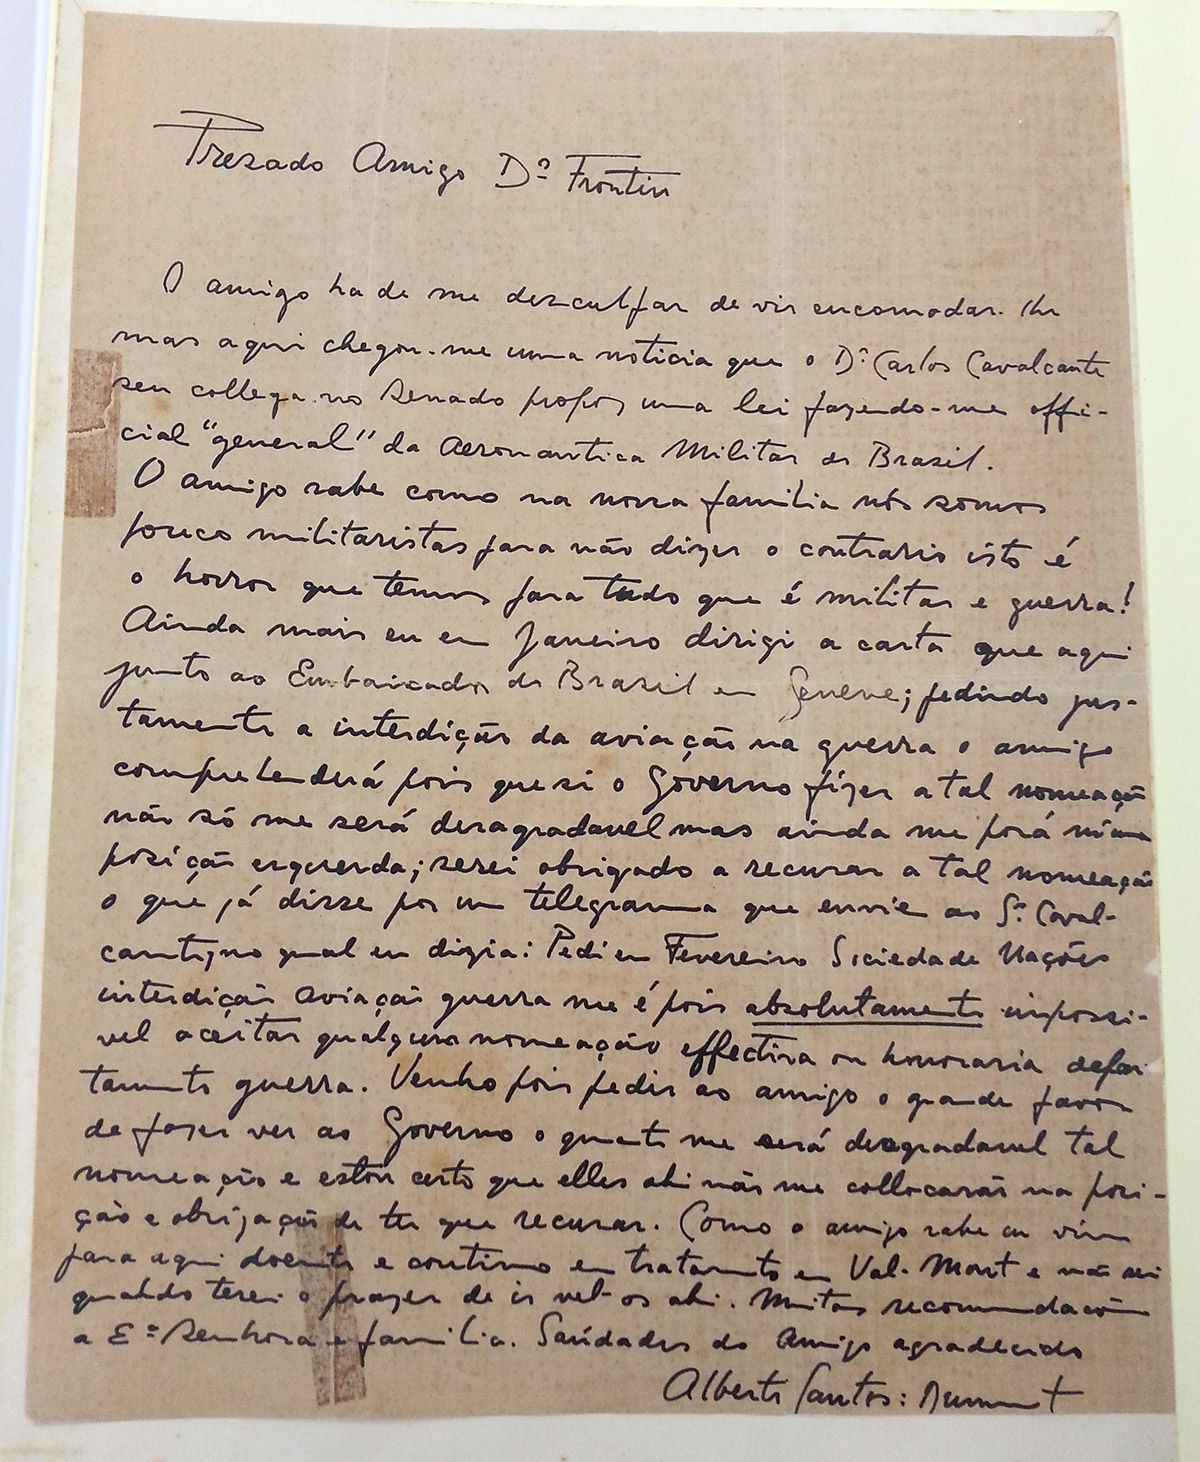 Prezado Amigo Dr Frontin
O amigo ha de me desculpar de vir encomodar-lhe
mas aqui chegou-me uma noticia que o Dr Carlos Cavalcante
seu collega no Senado propoz uma lei fazendo-me offi-
cial "general" da Aeronautica Militar do Brazil.
O amigo sabe como na nossa familia nós somos
pouco militaristas para não dizer o contrario isto é
o horror que temos para tudo que é militar e guerra!
Ainda mais eu em Janeiro dirigi a carta que aqui
junto ao Embaixador do Brazil em Geneve; pedindo jus-
tamente a interdição da aviação na guerra o amigo
comprehenderá pois que si o Governo fizer a tal nomeação
não só me será desagradavel mas ainda me porá n'uma
posição esquerda; serei obrigado a recusar a tal nomeação
o que já disse por um telegramma que enviei ao Sr Caval-
canti, no qual eu dizia: Pedi em Fevereiro Sociedade Nações
interdição aviação guerra me é pois absolutamente impossi-
vel aceitar qualquer nomeação effectiva ou honoraria depar-
tamento guerra. Venho pois pedir ao amigo o grande favor
de fazer ver ao Governo o quanto me será desgradavel tal
nomeação e estou certo que elles ahi não me collocarão na posi-
ção e obrigação de ter que recusar. Como o amigo sabe eu vim
para aqui doente e continuo em tratamento em Val-Mont e não sei
quando terei o prazer de ir vel-os ahi. Muitas recomendações
a Ea Senhora e familia. Saúdades do Amigo agradecido
Alberto Santos=Dumont